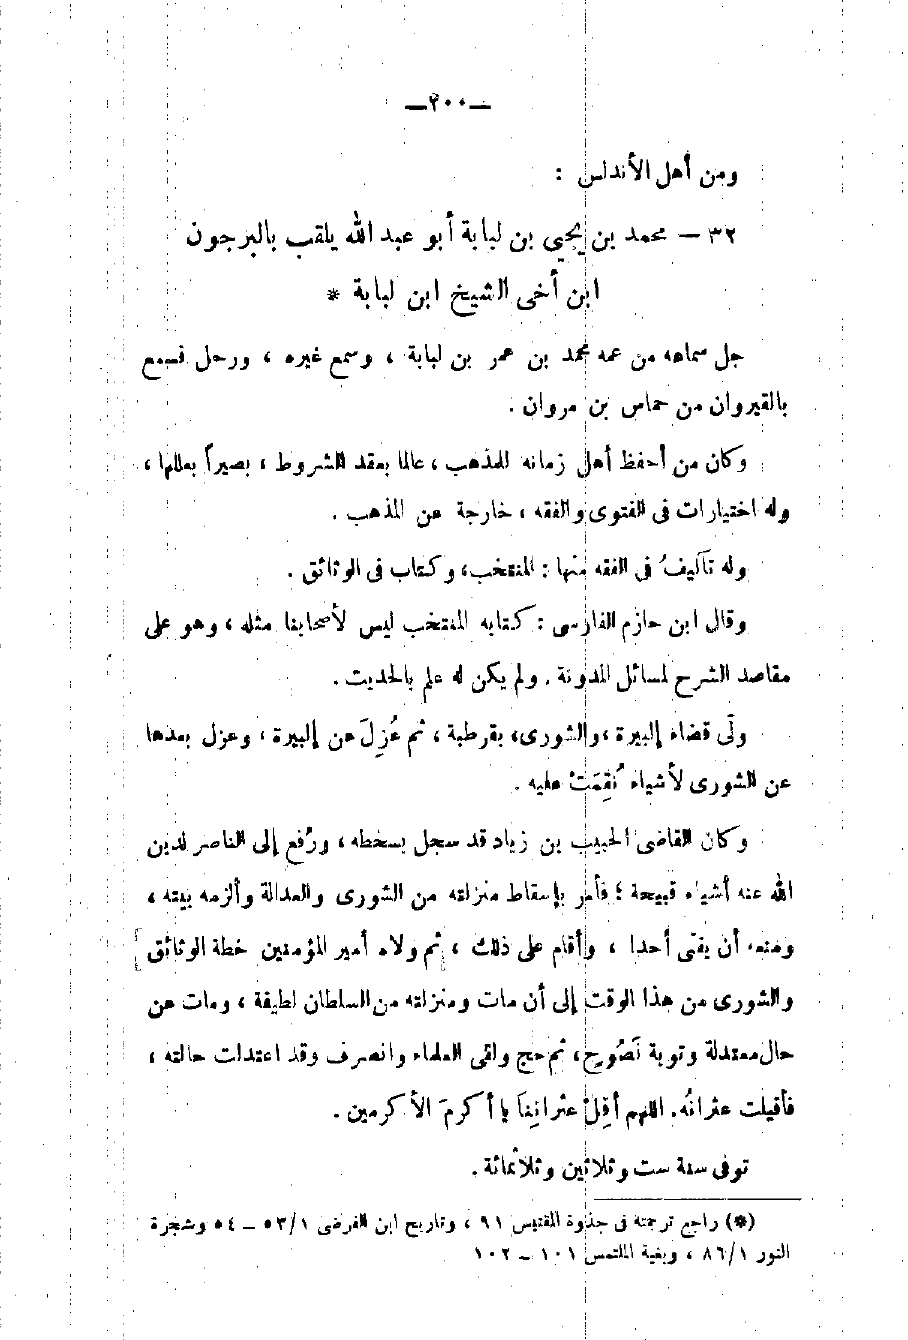 —٢٠٠—
ومن أهل الأندلس :
٣٢ — محمد بن يحيى بن لبابة أبو عبد الله يلقب بالبرجون
ابن أخى الشيخ ابن لبابة *
جل سماعه من عمه محمد بن عمر بن لبابة ، وسمع غيره ، ورحل فسمع
بالقيروان من حماس بن مروان .
وكان من أحفظ أهل زمانه للمذهب ، عالما بعقد الشروط ، بصيراً بعللها ،
وله اختيارات فى الفتوى والفقه ، خارجة عن المذهب .
وله تآليفُ فى الفقه منها : المنتخب، وكتاب فى الوثائق .
وقال ابن حازم الفارسى : كتابه المنتخب ليس لأصحابنا مثله ، وهو على
مقاصد الشرح لمسائل المدونة . ولم يكن له علم بالحديث .
ولّى قضاء إلبيرة ، والشورى، بقرطبة ، ثم عُزِلَ عن إلبيرة ، وعزل بعدها
عن الشورى لأشياء نُقِمَتْ عليه .
وكان القاضى الحبيب بن زياد قد سجل بسخطه ، ورُفع إلى الناصر لدين
الله عنه أشياء قبيحة ؛ فأمر بإسقاط منزلته من الشورى والعدالة وألزمه بيته ،
ومنعه أن يفتى أحدا ، وأقام على ذلك ، ثم ولاه أمير المؤمنين خطة الوثائق
والشورى من هذا الوقت إلى أن مات ومنزلته من السلطان لطيفة ، ومات عن
حال معتدلة وتوبة نَصُوحٍ، ثم حج ولقى العلماء وانصرف وقد اعتدلت حالته ،
فأقيلت عثراتُه. اللهم أقِلْ عثراتِنا يا أكرمَ الأكرمين .
توفى سنة ست وثلاثين وثلاثمائة .
(*) راجع ترجمته فى جذوة المقتبس ٩١ ، وتاريخ ابن الفرضى ٥٣/١ — ٥٤ وشجرة
النور ٨٦/١ ، وبغية الملتمس ١٠١ — ١٠٢